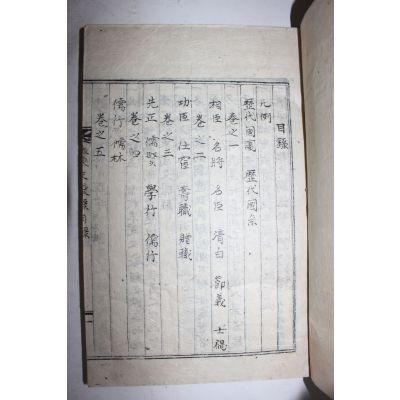 目錄
凡例
歷代國號 歷代國系
卷之一
相臣 名將 名臣 淸白 節義 士禍
卷之二
功臣 仕宦 蔭職 贈職
卷之三
先正 儒賢 學行 儒行
卷之四
儒行 儒林
卷之五